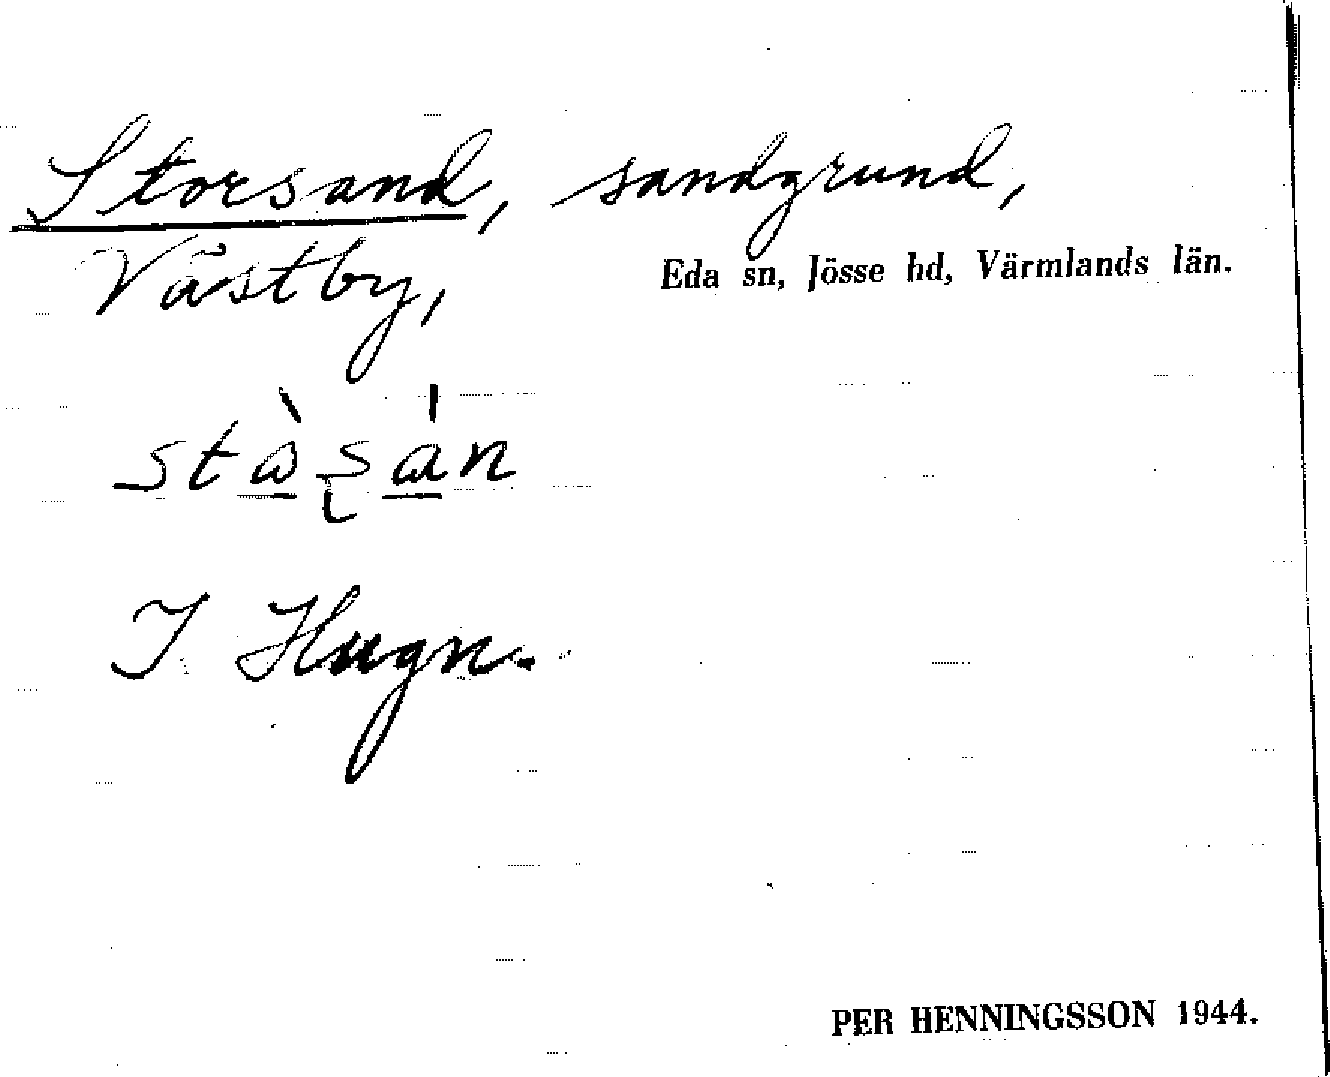 Storsand, sandgrund,
Västby,
Eda sn, Jösse hd, Värmlands län.
stàʂán
J Hugn.
PER HENNINGSSON 1944.